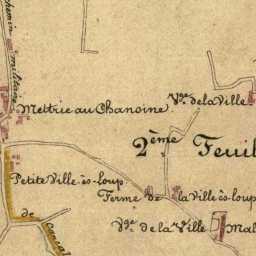 chemin militaire
Mettrie au Chanoine
Vge. de la Ville
2ème Feuil
Petite Ville-ès-loup
Ferme de la Ville ès loup
de
Vge. de la Ville
Mal